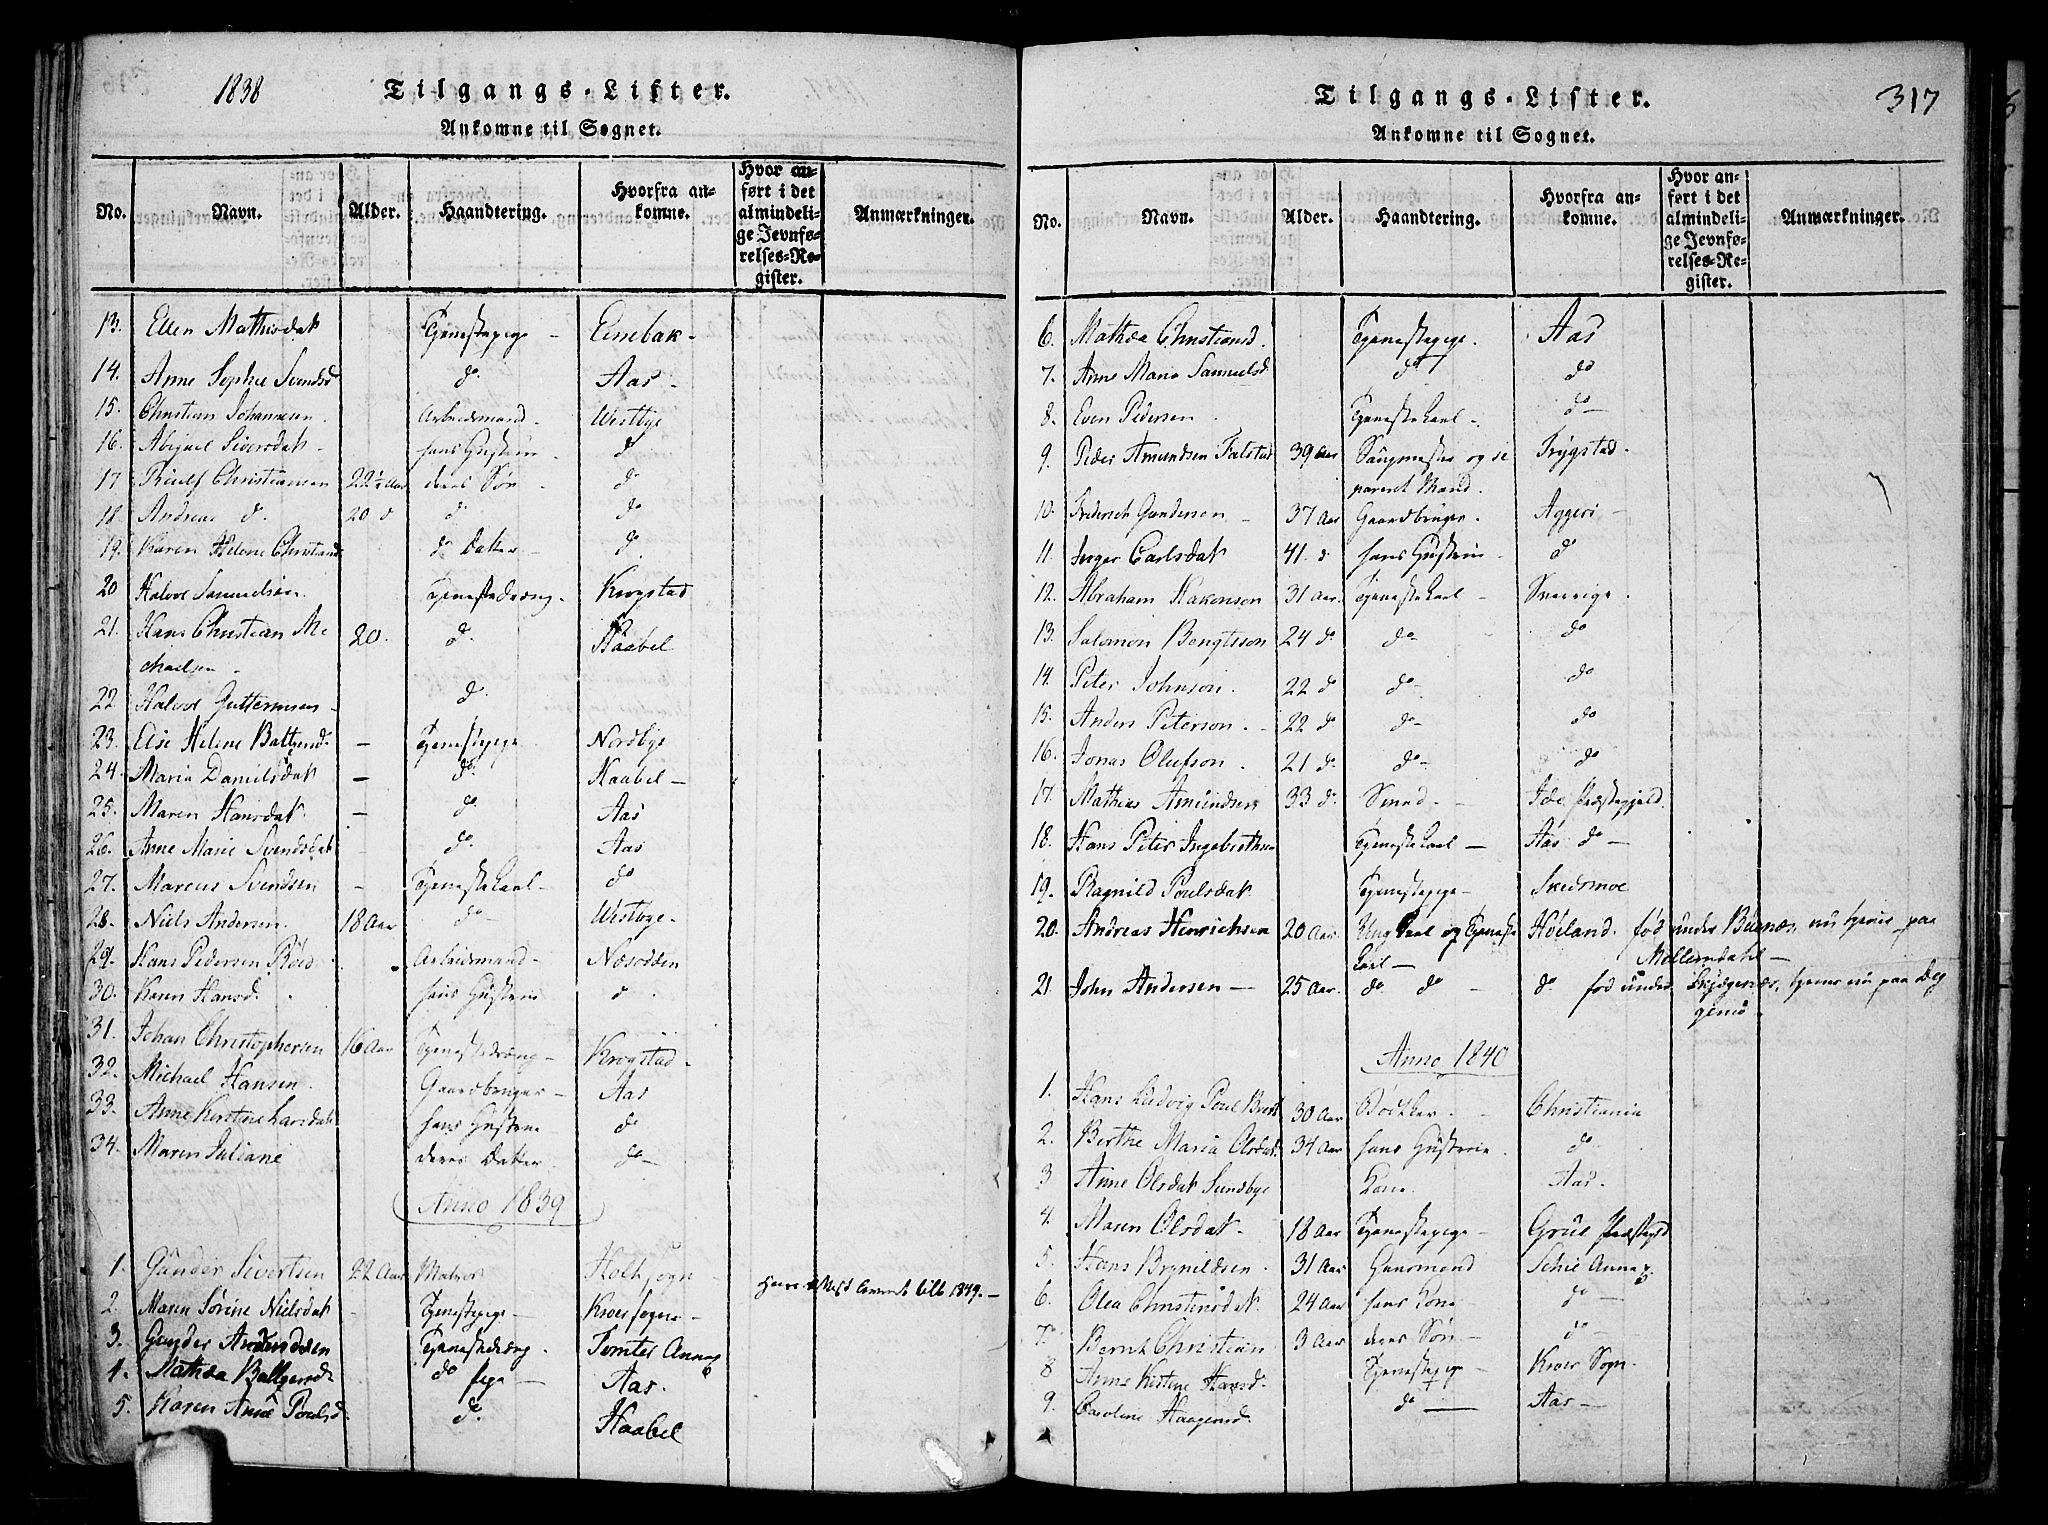 1838 Tilgangs-Lister.
Ankomne til Sognet.
No. Navn. Alder. Haandtering. Hvorfra ankomne. Hvor anført i det almindelige Jevnførelses-Register. Anmærkninger.
13. Ellen Mathisdat Tjenestepige - Enebak -
14. Anne Sophie Svendsd do Aas -
15. Christian Johannesen Arbeidsmand - Westbye
16. Abigael Siversdat - hans Hustru do
17 Christiansen 22½ Aar deres Søn - do
18. Andreas do. 20 do do do
19. Karen Helene Christiansd do Datter - do
20 Halvor Samuelsen. Tjenestedreng - Krogstad
21. Hans Christian Mi 20. do. Haabel
chaelsen -
22 Halvor Guttormsen - do
23. Else Helene - Tjenestpige Nordbye
24. Maria Danielsdat - do. Haabel -
25. Maren Hansdat. - do Aas
26. Anne Marie Svendsdat - do. Aas
27. Marcus Svendsen - Tjenestekarl - do
28. Niels Andersen. 18 Aar do - Westbye.
29. Hans Pedersen Arbeidsmand - Næsodden
30. Karen Hansd. hans Hustrue do
31. Johan Christophersen 16 Aar Tjenestedreng - Krogstad -
32. Michael Hansen. Gaardbruger - Aas
33. Anne Kirstine Larsdat. hans Hustrue do
34. Maren Juliane deres Datter. do -
Anno 1839
1. Gunder Sivertsen 22 Aar Holt sogn -
2. Maren Sørine Nielsdat - Tjenestpige - Kroer sogn - 1849. -
3. Gunder Tjenestedreng. Tomter Annex
4. Mathea do pige - Aas.
5. Karen Anne Poulsd. do. Haabel
Tilgangs-Lister. 317
Ankomne til Sognet.
No. Navn. Alder. Haandtering. Hvorfra ankomne. Hvor anført i det almindelige Jevnførelses-Register. Anmærkninger.
6. Mathea Christiansd. Tjenestepige. Aas
7. Anne Maria Samuelsd do do
8. Even Pedersen. Tjenestekarl - do -
9. Peder Amundsen Falstad 39 Aar Saugmester og se Trygstad.
pareret Mand.
10. Frederich Gundersen - 37 Aar Gaardbruger. Aggers -
11. Inger Carlsdat 41. do hans Hustrue - do
12. Abraham Hakonson 31 Aar. Tjenestekarl - Sverrige.
13. Salomon Bengtsson 24 do do do
14. Peter Johnson. 22 do do - do
15. Anders Peterson. - 22 do do - do
16. Jonas Olufson. 21 do. do - do
17. Mathias Amundsen 33 do. Smed. - Præstegjeld.
18. Hans Peter Ingebrethsen Tjenestekarl - Aas do -
19. Ragnild Poulsdat. Tjenestepige - Skedsmoe
20. Andreas Henrichsen 20 Aar. Ungkarl og Tjeneste Høland. fød under nu tjener paa
karl - Mellemdahl -
21. John Andersen - 25 Aar. do do - do fød under tjener nu paa
Anno 1840
1. Hans Ludvig Poul 30 Aar Bødtker. - Christiania
2. Berthe Maria Olsdat. 34 Aar hans Hustrue. do
3 Anne Olsdat Sundbye Kone. Aas.
4. Maren Olsdat - 18 Aar Tjenestepige - Grue Præstegjd
5. Hans Brynildsen. 31 Aar Huusmand Schie Annex
6. Olea Christensdat. 24 Aar hans Kone do -
7. Bernt Christian 3 Aar deres Søn - do -
8 Anne Kirstine Hansd. Tjenestepige Kroer Sogn.
9. Caroline Haagensd. do - Aas -